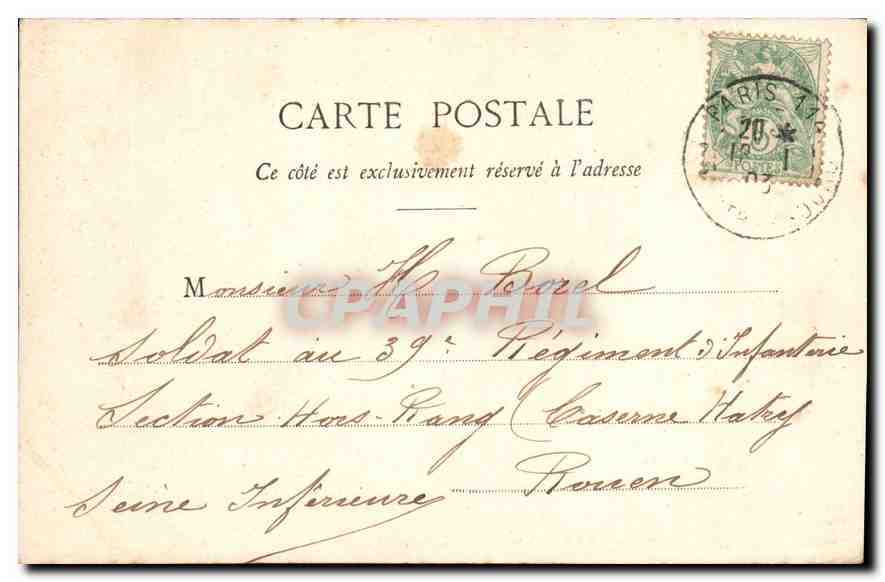 CARTE POSTALE
Ce côté est exclusivement réservé à l'adresse
PARIS
20 *
1
03
POSTES
CPAPHIL
Monsieur H Borel
Soldat au 39e Régiment d'Infanterie
Section Hors-Rang (Caserne Hatry
Rouen
Seine Inférieure